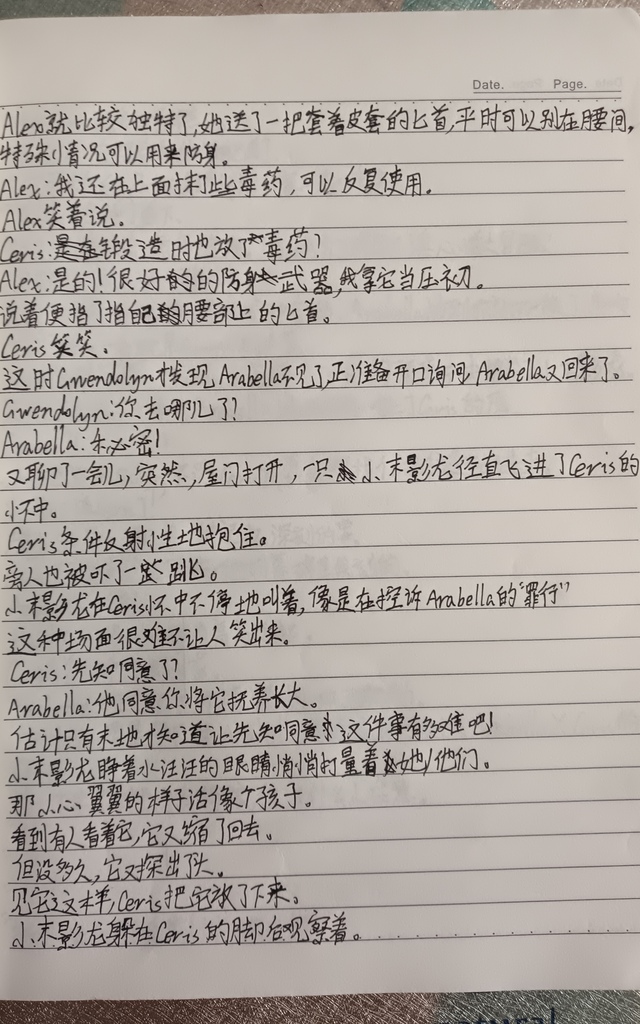 Date. Page.
Alex就比较独特了,她送了一把套着皮套的匕首,平时可以别在腰间,
特殊情况可以用来防身。
Alex:我还在上面抹了些毒药,可以反复使用。
Alex笑着说。
Ceris:是在锻造时也放了毒药?
Alex:是的!很好的防身武器,我拿它当压衣刀。
说着便指了指自己腰部上的匕首。
Ceris笑笑。
这时Gwendolyn才发现,Arabella不见了,正准备开口询问,Arabella又回来了。
Gwendolyn:你去哪儿了?
Arabella:秘密!
又聊了一会儿,突然,屋门打开,一只小末影龙径直飞进了Ceris的
怀中。
Ceris条件反射性地抱住。
旁人也被吓了一跳。
小末影龙在Ceris怀中不停地叫着,像是在控诉Arabella的"罪行"
这种场面很难不让人笑出来。
Ceris:先知同意了?
Arabella:他同意你将它抚养长大。
估计只有末地才知道让先知同意这件事有多难吧!
小末影龙睁着水汪汪的眼睛悄悄打量着她/他们。
那小心翼翼的样子活像个孩子。
看到有人看着它,它又缩了回去。
但没多久,它又探出了头。
见它这样,Ceris把它放了下来。
小末影龙躲在Ceris的脚后观察着。